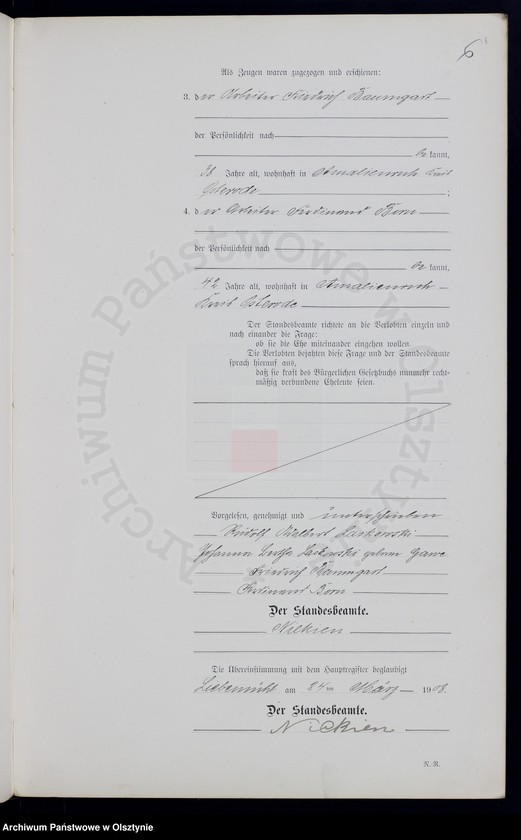 6
Als Zeugen waren zugezogen und erschienen:
3. der Arbeiter Friedrich Baumgart
der Persönlichkeit nach
be kannt,
38 Jahre alt, wohnhaft in Amalienruh Kreis
Osterode ;
4. der Arbeiter Ferdinand Born
der Persönlichkeit nach
be kannt,
42 Jahre alt, wohnhaft in Amalienruh
Kreis Osterode
Der Standesbeamte richtete an die Verlobten einzeln und
nach einander die Frage:
ob sie die Ehe miteinander eingehen wollen.
Die Verlobten bejahten diese Frage und der Standesbeamte
sprach hierauf aus,
daß sie kraft des Bürgerlichen Gesetzbuchs nunmehr recht-
mäßig verbundene Eheleute seien.
Vorgelesen, genehmigt und unterschrieben
Rudolf Adalbert Laskowski
Johanna Laskowski geborne Gawe
Friedrich Baumgart
Ferdinand Born
Der Standesbeamte.
Nickien
Die Übereinstimmung mit dem Hauptregister beglaubigt
Liebemühl am 24ten März 1908.
Der Standesbeamte.
Nickien
N. R.
Archiwum Państwowe w Olsztynie
Archiwum Państwowe w Olsztynie